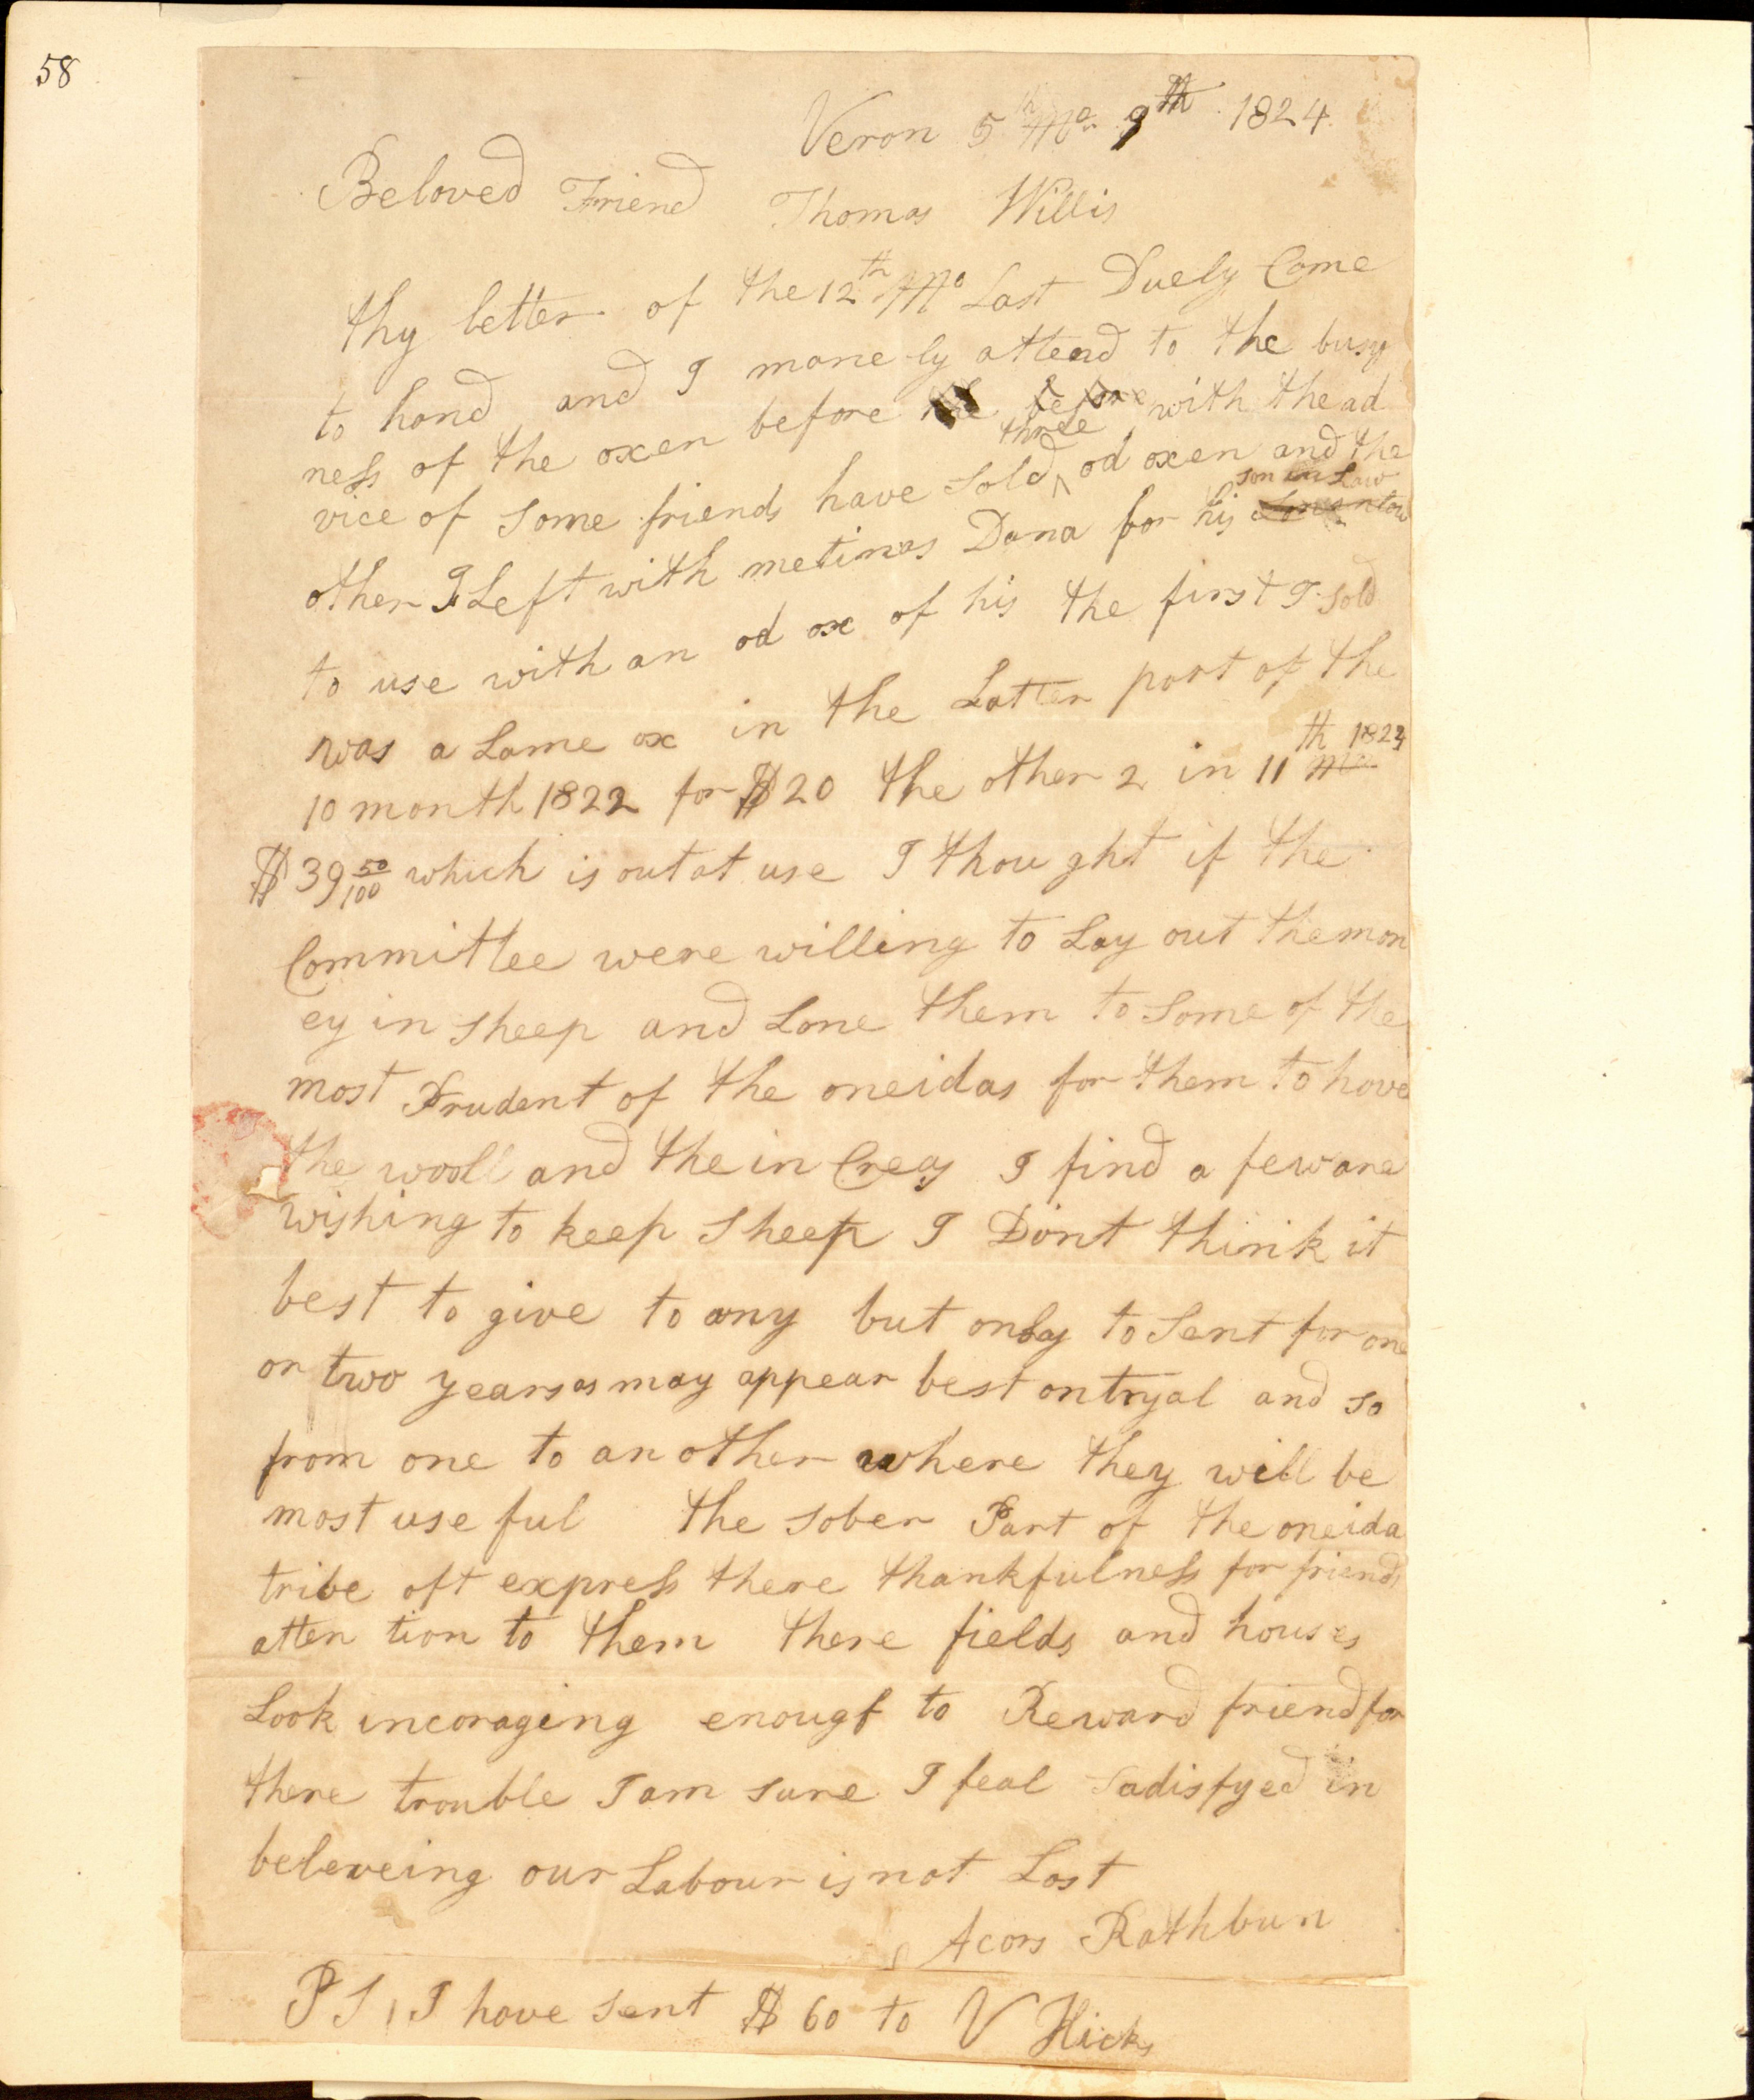 58
Veron 5th Mo 9th 1824
Beloved Friend Thomas Willis
thy letter of the 12th Mo Last Duely Come
to hand and I mane ly attend to the busy
ness of the oxen before with the ad
vice of Some friends have Sold three od oxen and the
other I Left with metinas Dana for his son in Law
to use with an od ox of his the first I Sold
was a Lame ox in the Latter part of the
10 month 1822 for $20 the other 2 in 11th mo 1823
$39 50/100 which is out at use I thought if the
Committee were willing to Lay out the mon
ey in Sheep and Lone them to Some of the
most Prudent of the oneidas for them to have
the wooll and the in Creas I find a few are
wishing to keep Sheep I Dont think it
best to give to any but only to Lent for one
or two years as may appear best on tryal and so
from one to an other where they will be
most use ful the sober Part of the oneida
tribe oft express there thankfulness for friends
atten tion to them there fields and houses
Look incoraging enougf to Reward friend for
there trouble I am sure I feal Sadisfyed in
beleveing our Labour is not Lost
Acors Rathbun
PS, I have sent $60 to V Hicks